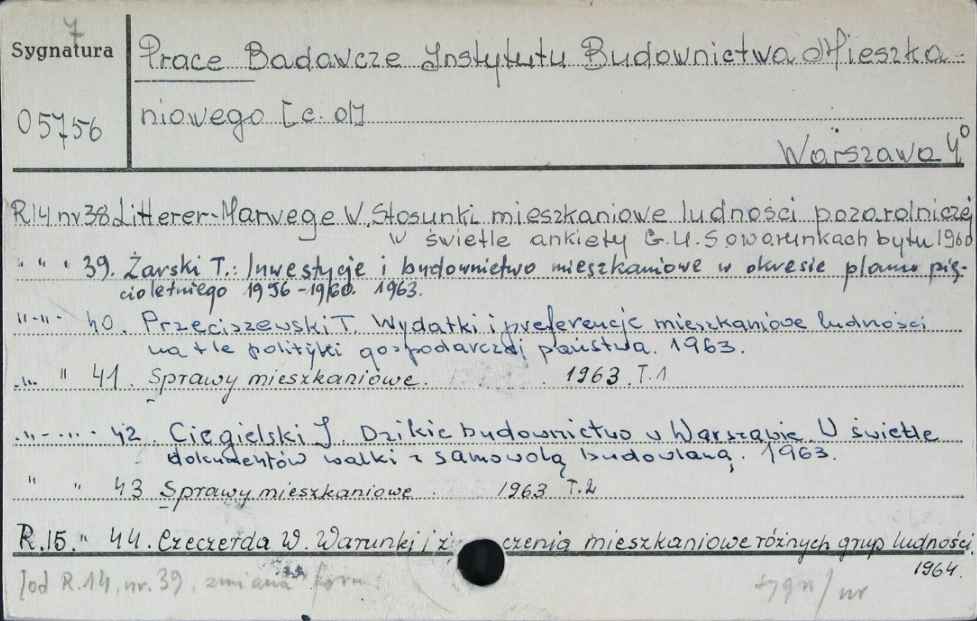 7
Sygnatura
05756
Prace Badawcze Instytutu Budownictwa Mieszka-
niowego [c. d]
Warszawa 4°
R 14 nr 38 Litterer-Marwege W. Stosunki mieszkaniowe ludności pozarolniczej
w świetle ankiety G.U.S o warunkach bytu 1960
" " " 39. Żarski T.: Inwestycje i budownictwo mieszkaniowe w okresie planu pię-
cioletniego 1956-1960. 1963.
"-"- 40. Przeciszewski T. Wydatki i preferencje mieszkaniowe ludności
na tle polityki gospodarczej państwa. 1963.
-"- " 41. Sprawy mieszkaniowe. 1963. T.1
-"- -"- 42. Ciegielski J. Dzikie budownictwo w Warszawie. W świetle
dokumentów walki z samowolą budowlaną. 1963.
" " 43 Sprawy mieszkaniowe. 1963 T.2
R.15. " 44. Czeczerda W. Warunki i czenia mieszkaniowe różnych grup ludności.
1964.
[od R.14, nr. 39. zmiana form
sygn/nr